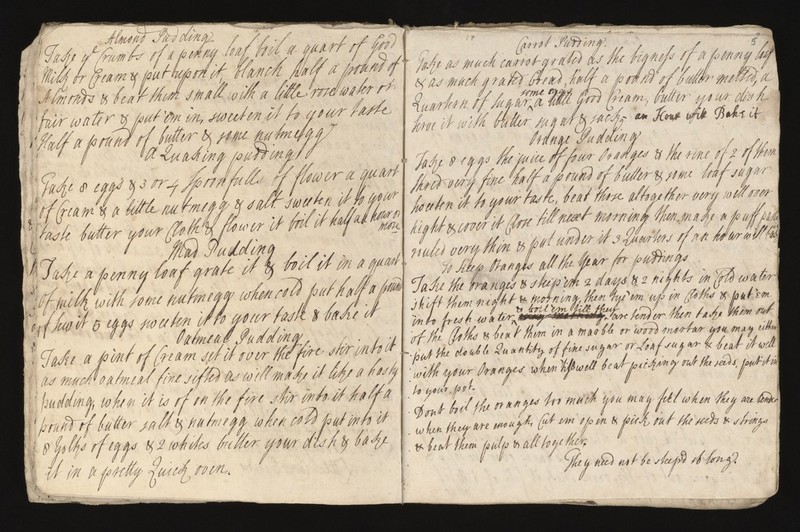 Almond Pudding
Take ye Crumbs of a penny loaf boil a quart of Good
Milk or Cream & put upon it, blanch half a pound of
Almonds & beat them small with a little rose water or
fair water & put em in, sweeten it to your taste
Half a pound of butter & some nutmegg
A Quaking pudding
Take 8 eggs & 3 or 4 Spoonfulls of flower a quart
of Cream & a little nutmegg & salt sweeten it to your
taste butter your Cloth & flower it boil it half an hour or
more
Mad Pudding
Take a penny loaf grate it & boil it in a quart
of milk with some nutmegg when cold put half a pound
of suit 5 eggs sweeten it to your taste & bake it
Oatmeal Pudding
Take a pint of Cream set it over the fire stir into it
as much oatmeal fine sifted as will make it like a hasty
pudding, when it is of on the fire stir into it half a
pound of butter salt & nutmegg when cold put into it
8 yolks of eggs & 2 whites butter your dish & bake
it in a pretty Quick oven.
5
Carrot Pudding
Take as much carrot grated as the bigness of a penny loaf
& as much grated bread, half a pound of butter melted, a
Quartern of Sugar, some eggs a little Good Cream, butter your dish
butter sugar & sack an Hour will Bake it
Orange Pudding
Take 8 eggs the juice of four Oranges & the rine of 2 of them
shred very fine half a pound of butter & some loaf sugar
sweeten it to your taste, beat these altogether very well over
night & cover it Close till next morning then make a puff paste
ruled very thin & put under it 3 Quarters of an hour will bake
To keep Oranges all the Year for puddings
Take the oranges & steep em 2 days & 2 nights in Cold water
shift them night & morning then tye em up in Cloths & put em
into fresh water & boil em till they are tender then take them out
of the Cloths & beat them in a marble or wood mortar you may either
put the double Quantity of fine sugar or Loaf sugar & beat it well
with your Oranges, when tis well beat picking out the seeds, put it in
to your pot.
Dont boil the oranges too much you may feel when they are tender
when they are enough, Cut em open & pick out the seeds & strings
& beat them pulp & all together.
They need not be steep'd so long.